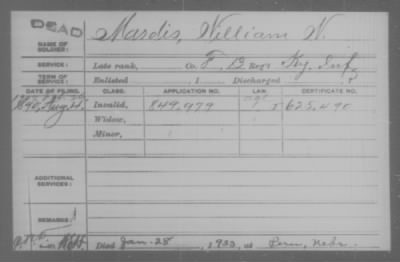 DEAD
NAME OF SOLDIER: Mardis, William W.
SERVICE: Late rank, Co. F, 12 Reg't Ky. Inf.
TERM OF SERVICE: Enlisted , 1 Discharged , 1
DATE OF FILING. CLASS. APPLICATION NO. LAW. CERTIFICATE NO.
1890, Aug. Invalid, 849,979 625,490
Widow,
Minor,
ADDITIONAL SERVICES:
REMARKS:
Died Jan. 28, 1933, at Peru, Nebr.